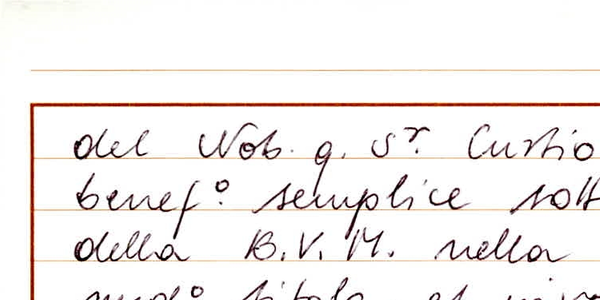 del Nob. g. Sr. Curtio
benef.º semplice sott
della B.V.M. nella
titolo et